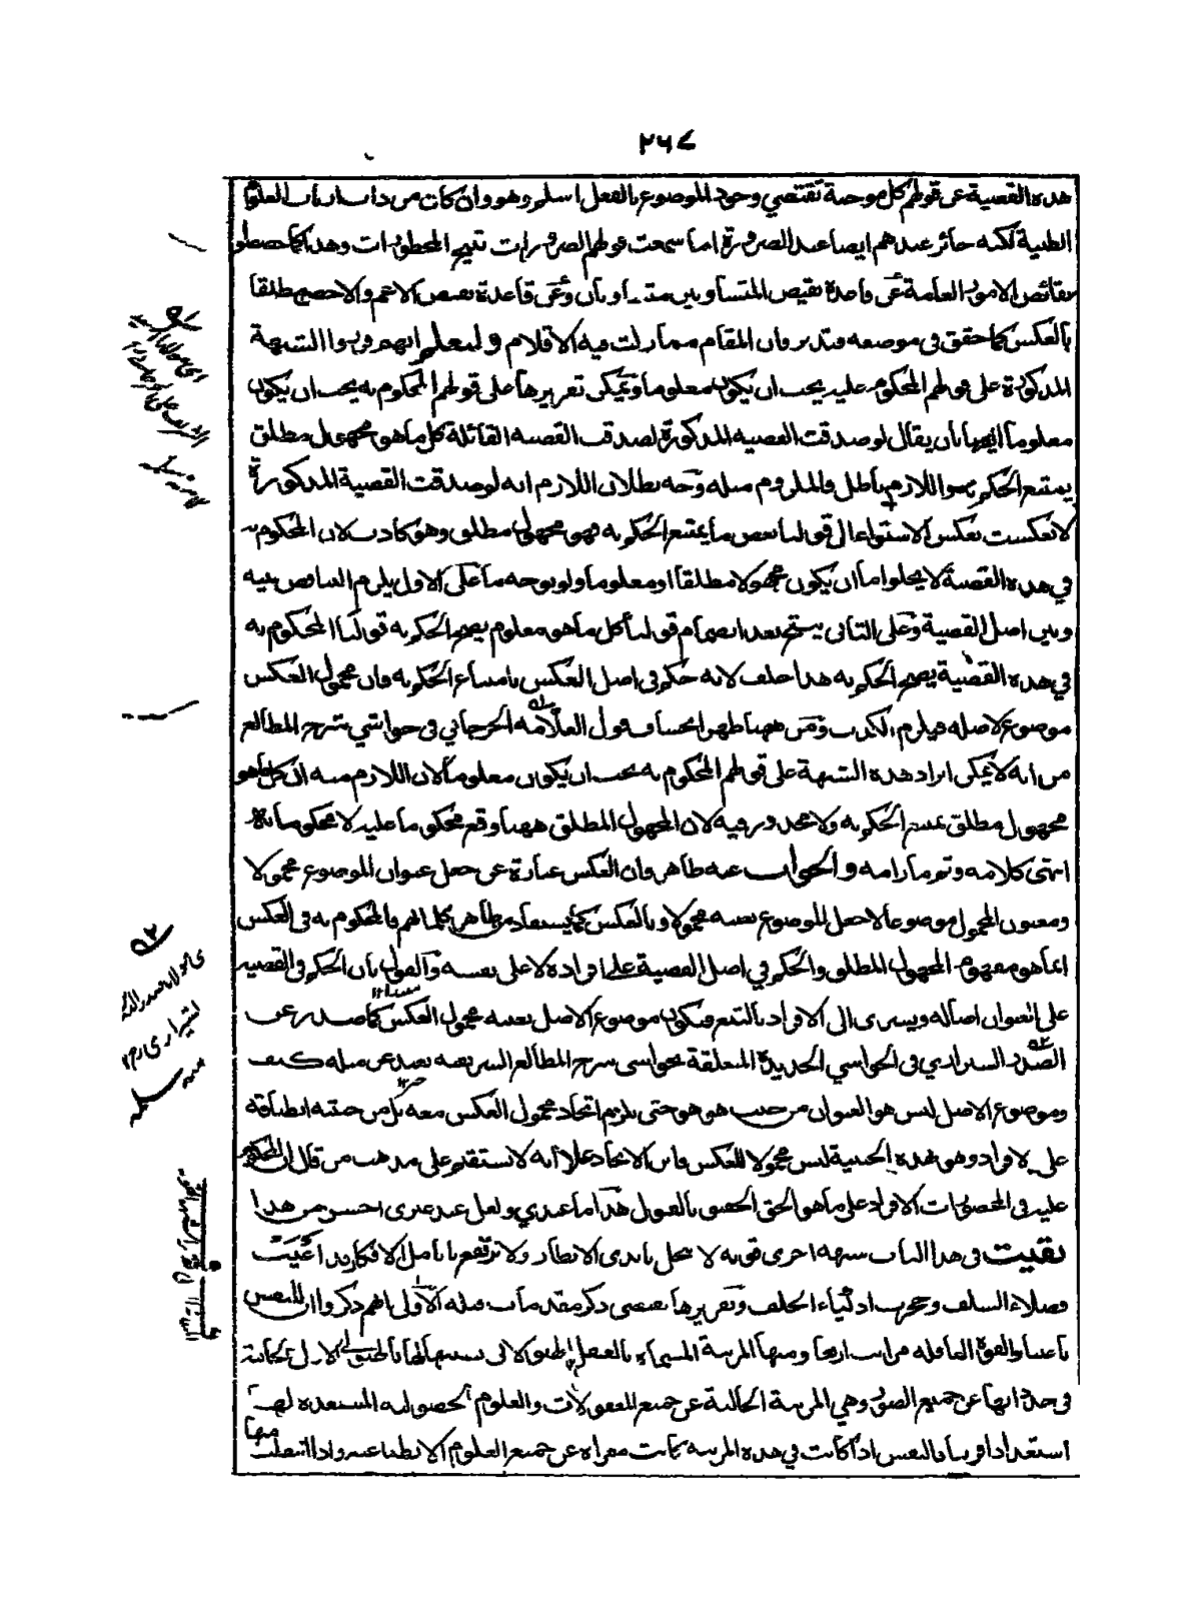 ٢٦٧
هذه القضية عن قولهم كل موجبة تقتضي وجود الموضوع بالفعل اسلم وهو وان كان من داب ارباب العلوم
الظنية لكنه جائز عندهم ايضا عند الضرورة اما سمعت قولهم الضرورات تبيح المحظورات وهذا كما خصصوا
نقائص الامور العامة عن قاعدة نقيض المتساويين متساويان وعن قاعدة نقيض الاعم والاخص مطلقا
بالعكس كما حقق في موضعه فتدبر فان المقام مما زلت فيه الاقلام وليعلم انهم قرروا الشبهة
المذكورة على قولهم المحكوم عليه يجب ان يكون معلوما ويمكن تقريرها على قولهم المحكوم به يجب ان يكون
معلوما ايضا بان يقال لو صدقت القضية المذكورة لصدقت القضية القائلة كل ما هو مجهول مطلق
يمتنع الحكم به واللازم باطل والملزوم مثله وجه بطلان اللازم انه لو صدقت القضية المذكورة
لانعكست بعكس الاستواء الى قولنا بعض ما يمتنع الحكم به فهو مجهول مطلق وهو كاذب لان المحكوم به
في هذه القضية لا يخلوا ما ان يكون مجهولا مطلقا او معلوما ولو بوجه ما على الاول يلزم التناقض بينه
وبين اصل القضية وعلى الثاني ينتج بعد انضمام قولنا كل ما هو معلوم يصح الحكم به قولنا المحكوم به
في هذه القضية يصح الحكم به هذا خلف لانه حكم في اصل العكس بامتناع الحكم به فان محمول العكس
موضوع لاصله فيلزم الكذب ومن ههنا ظهر انخساف قول العلامة الجرجاني في حواشي شرح المطالع
من انه لا يمكن ايراد هذه الشبهة على قولهم المحكوم به يجب ان يكون معلوما لان اللازم منه ان كل ما هو
مجهول مطلق يمتنع الحكم به ولا محذور فيه لان المجهول المطلق ههنا وقع محكوما عليه لا محكوما به
انتهى كلامه وتم مرامه والجواب عنه ظاهر فان العكس عبارة عن جعل عنوان الموضوع محمولا
ومعنون المحمول موضوعا لا جعل الموضوع نفسه محمولا وبالعكس كما يستفاد من ظاهر كلماتهم فالمحكوم به في العكس
انما هو مفهوم المجهول المطلق والحكم في اصل القضية على افراده لا على نفسه والقول بان الحكم في القضية
على العنوان اصالة ويسرى الى الافراد بالتبع فيكون موضوع الاصل بعينه محمول العكس كما صدر عن
الصدر الشيرازي في الحواشي الجديدة المتعلقة بحواشي شرح المطالع الشريفية بعيد عن مثله كيف
وموضوع الاصل ليس هو العنوان من حيث هو هو حتى يلزم اتحاد محمول العكس معه بل من حيث انطباقه
على الافراد وهو بهذه الحيثية ليس محمولا للعكس فاين الاتحاد علا انه لا يستقيم على مذهب من قال ان المحكوم
عليه في المحصورات الافراد على ما هو الحق الحقيق بالقبول هذا ما عندي ولعل عند غيري احسن من هذا
بقيت في هذا الباب شبهة اخرى قوية لا تنحل بايدي الانظار ولا ترتفع بانامل الافكار قد اعيت
فضلاء السلف وحيرت اذكياء الخلف وتقريرها يقتضي ذكر مقدمات قبله الاولى انهم ذكروا ان للنفس
باعتبار القوة العاقلة مراتب اربعا ومنها المرتبة المسماة بالعقل الهيولاني تشبيها لها بالهيولى الاولى الخالية
في حد ذاتها عن جميع الصور وهي المرتبة الخالية عن جميع المعقولات والعلوم الحصولية المستعدة لها
استعدادا قريبا فالنفس اذا كانت في هذه المرتبة كانت معراة عن جميع العلوم الانطباعية واذا انتقلت منها